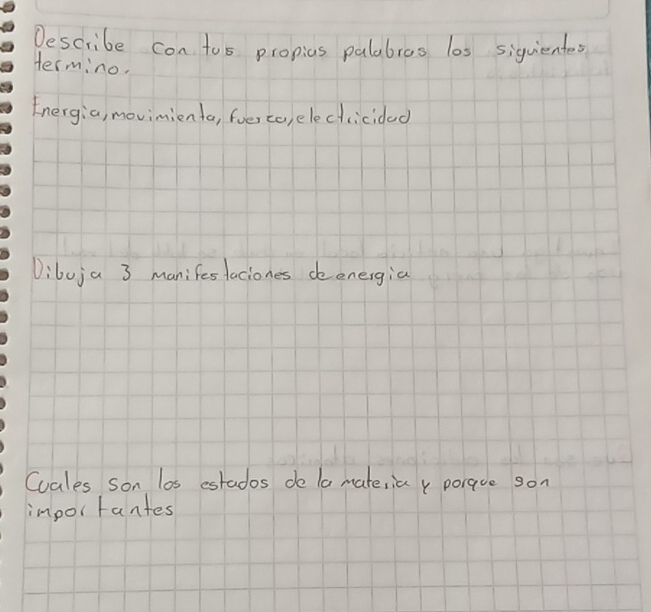 Describe con tus propias palabras los siguientes
termino.
Energia, movimienta, fuerza, electricidad
Dibuja 3 manifestaciones de energia
Cuales son los estados de la materia y porque son
importantes